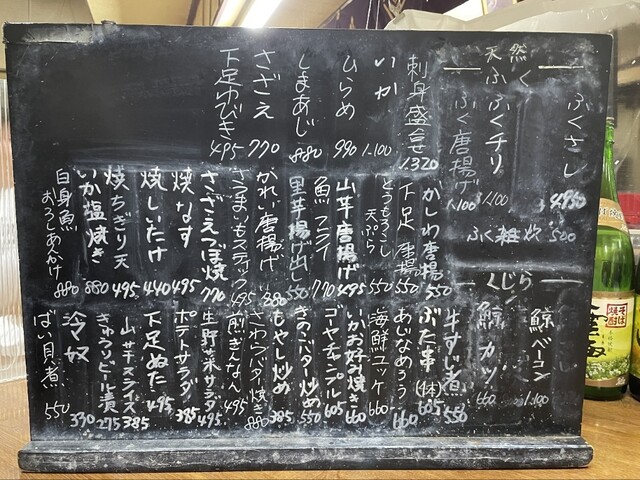 天然
ふく
ふくさし 4.950
ふくチリ 1.100
ふく唐揚げ 1.100
ふく雑炊 520
くじら
鯨ベーコン 1.100
鯨カツ 660
刺身盛合せ 1.320
いか 1.100
ひらめ 990
しまあじ 880
さざえ 770
下足ゆびき 495
かしわ唐揚 550
下足唐揚 550
とうもろこし天ぷら 550
山芋唐揚げ 495
魚フライ 770
里芋揚げ出し 550
かれい唐揚げ 880
さつまいもスティック 495
さざえつぼ焼 770
焼なす 495
焼しいたけ 440
焼ちぎり天 495
いか塩焼き 880
白身魚おろしあんかけ 880
牛すじ煮 550
ぶた串(1本) 605
あじなめろう 660
海鮮ユッケ 660
いかお好み焼き 660
ゴーヤチャンプルー 605
きのこバター炒め 550
もやし炒め 385
さわらバター焼き 880
煎ぎんなん 495
生野菜サラダ 495
ポテトサラダ 385
下足ぬた 495
山芋スライス 385
きゅうりビール漬 275
冷奴 330
ばい貝煮 550
そば焼酎